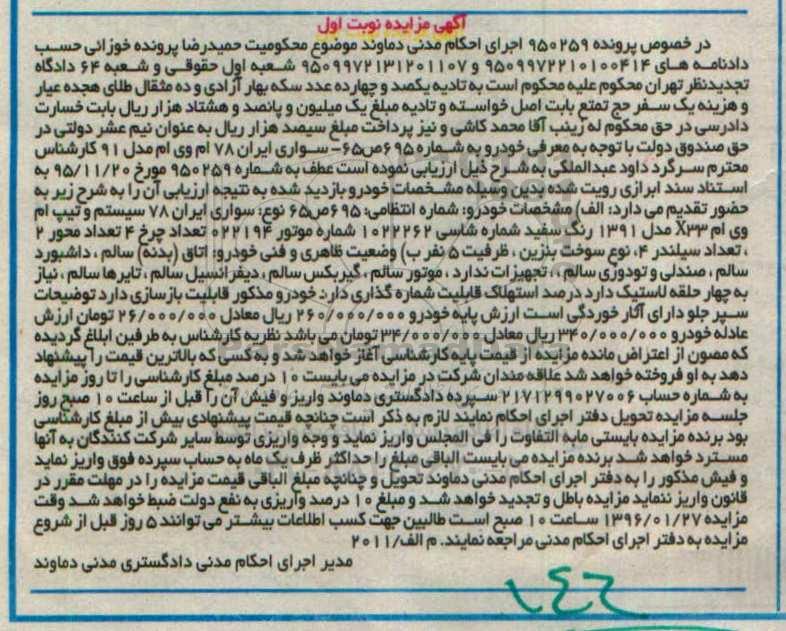 آگهی مزایده نوبت اول
در خصوص پرونده ۹۵۰۲۵۹ اجرای احکام مدنی دماوند موضوع محکومیت حمیدرضا پرونده خوزائی حسب
دادنامه های ۹۵۰۹۹۷۲۲۱۰۱۰۰۴۱۴ و ۹۵۰۹۹۷۲۱۳۱۲۰۱۱۰۷ شعبه اول حقوقی و شعبه ۶۴ دادگاه
تجدیدنظر تهران محکوم علیه محکوم است به تادیه یکصد و چهارده عدد سکه بهار آزادی و ده مثقال طلای هجده عیار
و هزینه یک سفر حج تمتع بابت اصل خواسته و تادیه مبلغ یک میلیون و پانصد و هشتاد هزار ریال بابت خسارت
دادرسی در حق محکوم له زینب آقا محمد کاشی و نیز پرداخت مبلغ سیصد هزار ریال به عنوان نیم عشر دولتی در
حق صندوق دولت با توجه به معرفی خودرو به شماره ۶۹۵ص۶۵- سواری ایران ۷۸ ام وی ام مدل ۹۱ کارشناس
محترم سرگرد داود عبدالملکی به شرح ذیل ارزیابی نموده است عطف به شماره ۹۵۰۲۵۹ مورخ ۹۵/۱۱/۲۰ به
استناد سند ابرازی رویت شده بدین وسیله مشخصات خودرو بازدید شده به نتیجه ارزیابی آن را به شرح زیر به
حضور تقدیم می دارد: الف) مشخصات خودرو: شماره انتظامی: ۶۹۵ص۶۵ نوع: سواری ایران ۷۸ سیستم و تیپ ام
وی ام X۳۳ مدل ۱۳۹۱ رنگ سفید شماره شاسی ۱۰۲۲۲۶۲ شماره موتور ۰۲۲۱۹۴ تعداد چرخ ۴ تعداد محور ۲
، تعداد سیلندر ۴، نوع سوخت بنزین ، ظرفیت ۵ نفر ب) وضعیت ظاهری و فنی خودرو: اتاق (بدنه) سالم ، داشبورد
سالم ، صندلی و تودوزی سالم ، ، تجهیزات ندارد ، موتور سالم ، گیربکس سالم ، دیفرانسیل سالم ، تایرها سالم ، نیاز
به چهار حلقه لاستیک دارد درصد استهلاک قابلیت شماره گذاری دارد خودرو مذکور قابلیت بازسازی دارد توضیحات
سپر جلو دارای آثار خوردگی است ارزش پایه خودرو ۲۶۰/۰۰۰/۰۰۰ ریال معادل ۲۶/۰۰۰/۰۰۰ تومان ارزش
عادله خودرو ۳۴۰/۰۰۰/۰۰۰ ریال معادل ۳۴/۰۰۰/۰۰۰ تومان می باشد نظریه کارشناس به طرفین ابلاغ گردیده
که مصون از اعتراض مانده مزایده از قیمت پایه کارشناسی آغاز خواهد شد و به کسی که بالاترین قیمت را پیشنهاد
دهد به او فروخته خواهد شد علاقه مندان شرکت در مزایده می بایست ۱۰ درصد مبلغ کارشناسی را تا روز مزایده
به شماره حساب ۲۱۷۱۲۹۹۰۲۷۰۰۶ سپرده دادگستری دماوند واریز و فیش آن را قبل از ساعت ۱۰ صبح روز
جلسه مزایده تحویل دفتر اجرای احکام نمایند لازم به ذکر است چنانچه قیمت پیشنهادی بیش از مبلغ کارشناسی
بود برنده مزایده بایستی مابه التفاوت را فی المجلس واریز نماید و وجه واریزی توسط سایر شرکت کنندگان به آنها
مسترد خواهد شد برنده مزایده می بایست الباقی مبلغ را حداکثر ظرف یک ماه به حساب سپرده فوق واریز نماید
و فیش مذکور را به دفتر اجرای احکام مدنی دماوند تحویل و چنانچه مبلغ الباقی قیمت مزایده را در مهلت مقرر در
قانون واریز ننماید مزایده باطل و تجدید خواهد شد و مبلغ ۱۰ درصد واریزی به نفع دولت ضبط خواهد شد وقت
مزایده ۱۳۹۶/۰۱/۲۷ ساعت ۱۰ صبح است طالبین جهت کسب اطلاعات بیشتر می توانند ۵ روز قبل از شروع
مزایده به دفتر اجرای احکام مدنی مراجعه نمایند. م الف/۲۰۱۱
مدیر اجرای احکام مدنی دادگستری مدنی دماوند